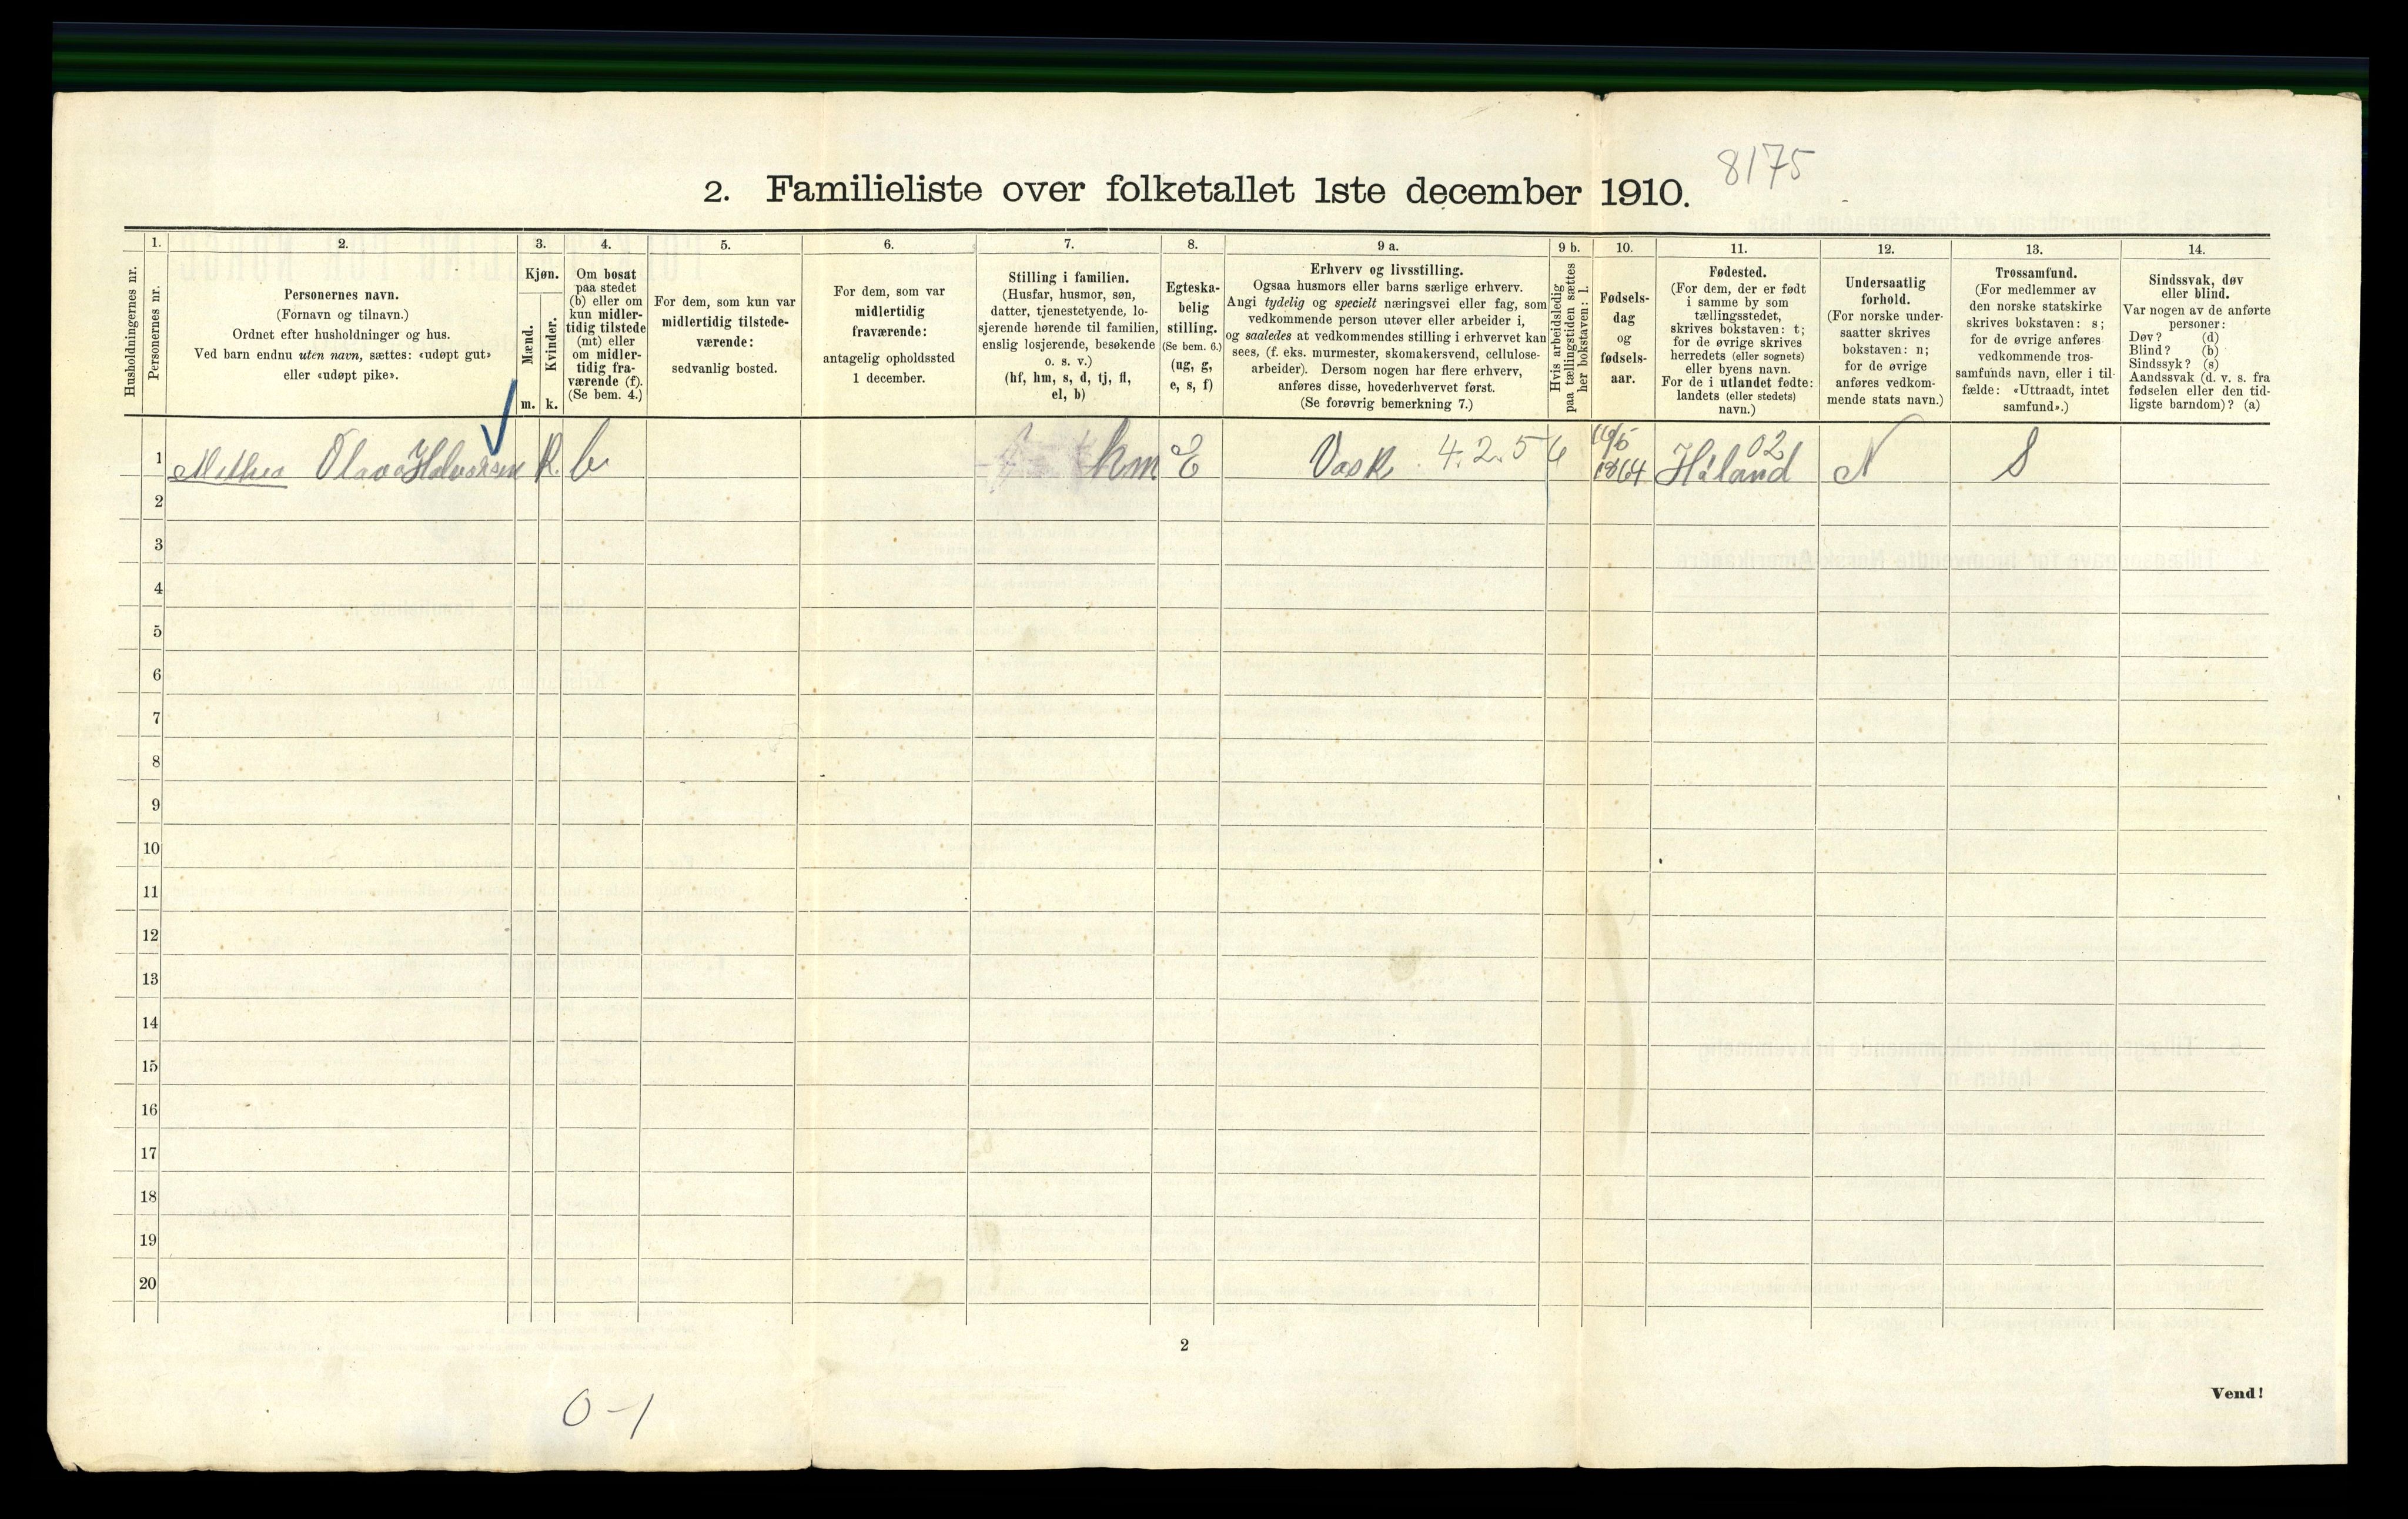 8175
2. Familieliste over folketallet 1ste december 1910.
Husholdningernes nr.
1.
Personernes nr.
2.
Personernes navn.
(Fornavn og tilnavn.)
Ordnet efter husholdninger og hus.
Ved barn endnu uten navn, sættes: «udøpt gut»
eller «udøpt pike».
3.
Kjøn.
Mænd.
Kvinder.
m. k.
4.
Om bosat
paa stedet
(b) eller om
kun midler-
tidig tilstede
(mt) eller
om midler-
tidig fra-
værende (f).
(Se bem. 4.)
5.
For dem, som kun var
midlertidig tilstede-
værende:
sedvanlig bosted.
6.
For dem, som var
midlertidig
fraværende:
antagelig opholdssted
1 december.
7.
Stilling i familien.
(Husfar, husmor, søn,
datter, tjenestetyende, lo-
sjerende hørende til familien,
enslig losjerende, besøkende
o. s. v.)
(hf, hm, s, d, tj, fl,
el, b)
8.
Egteska-
belig
stilling.
(Se bem. 6.)
(ug, g,
e, s, f)
9 a.
Erhverv og livsstilling.
Ogsaa husmors eller barns særlige erhverv.
Angi tydelig og specielt næringsvei eller fag, som
vedkommende person utøver eller arbeider i,
og saaledes at vedkommendes stilling i erhvervet kan
sees, (f. eks. murmester, skomakersvend, cellulose-
arbeider). Dersom nogen har flere erhverv,
anføres disse, hovederhvervet først.
(Se forøvrig bemerkning 7.)
9 b.
Hvis arbeidsledig
paa tællingstiden sættes
her bokstaven: l.
10.
Fødsels-
dag
og
fødsels-
aar.
11.
Fødested.
(For dem, der er født
i samme by som
tællingsstedet,
skrives bokstaven: t;
for de øvrige skrives
herredets (eller sognets)
eller byens navn.
For de i utlandet fødte:
landets (eller stedets)
navn.)
12.
Undersaatlig
forhold.
(For norske under-
saatter skrives
bokstaven: n;
for de øvrige
anføres vedkom-
mende stats navn.)
13.
Trossamfund.
(For medlemmer av
den norske statskirke
skrives bokstaven: s;
for de øvrige anføres
vedkommende tros-
samfunds navn, eller i til-
fælde: «Uttraadt, intet
samfund».)
14.
Sindssvak, døv
eller blind.
Var nogen av de anførte
personer:
Døv? (d)
Blind? (b)
Sindssyk? (s)
Aandssvak (d. v. s. fra
fødselen eller den tid-
ligste barndom)? (a)
1 Mathea Olava Halvorsen K. b hm E Vask 4.2.5 6 1864 Høland 02 N S
2
3
4
5
6
7
8
9
10
11
12
13
14
15
16
17
18
19
20
2
Vend!
0-1